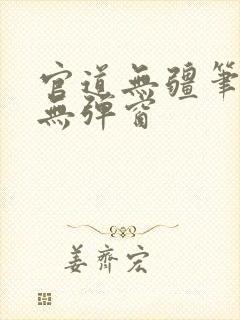 官道無疆筆
無彈窗
姜齊宏